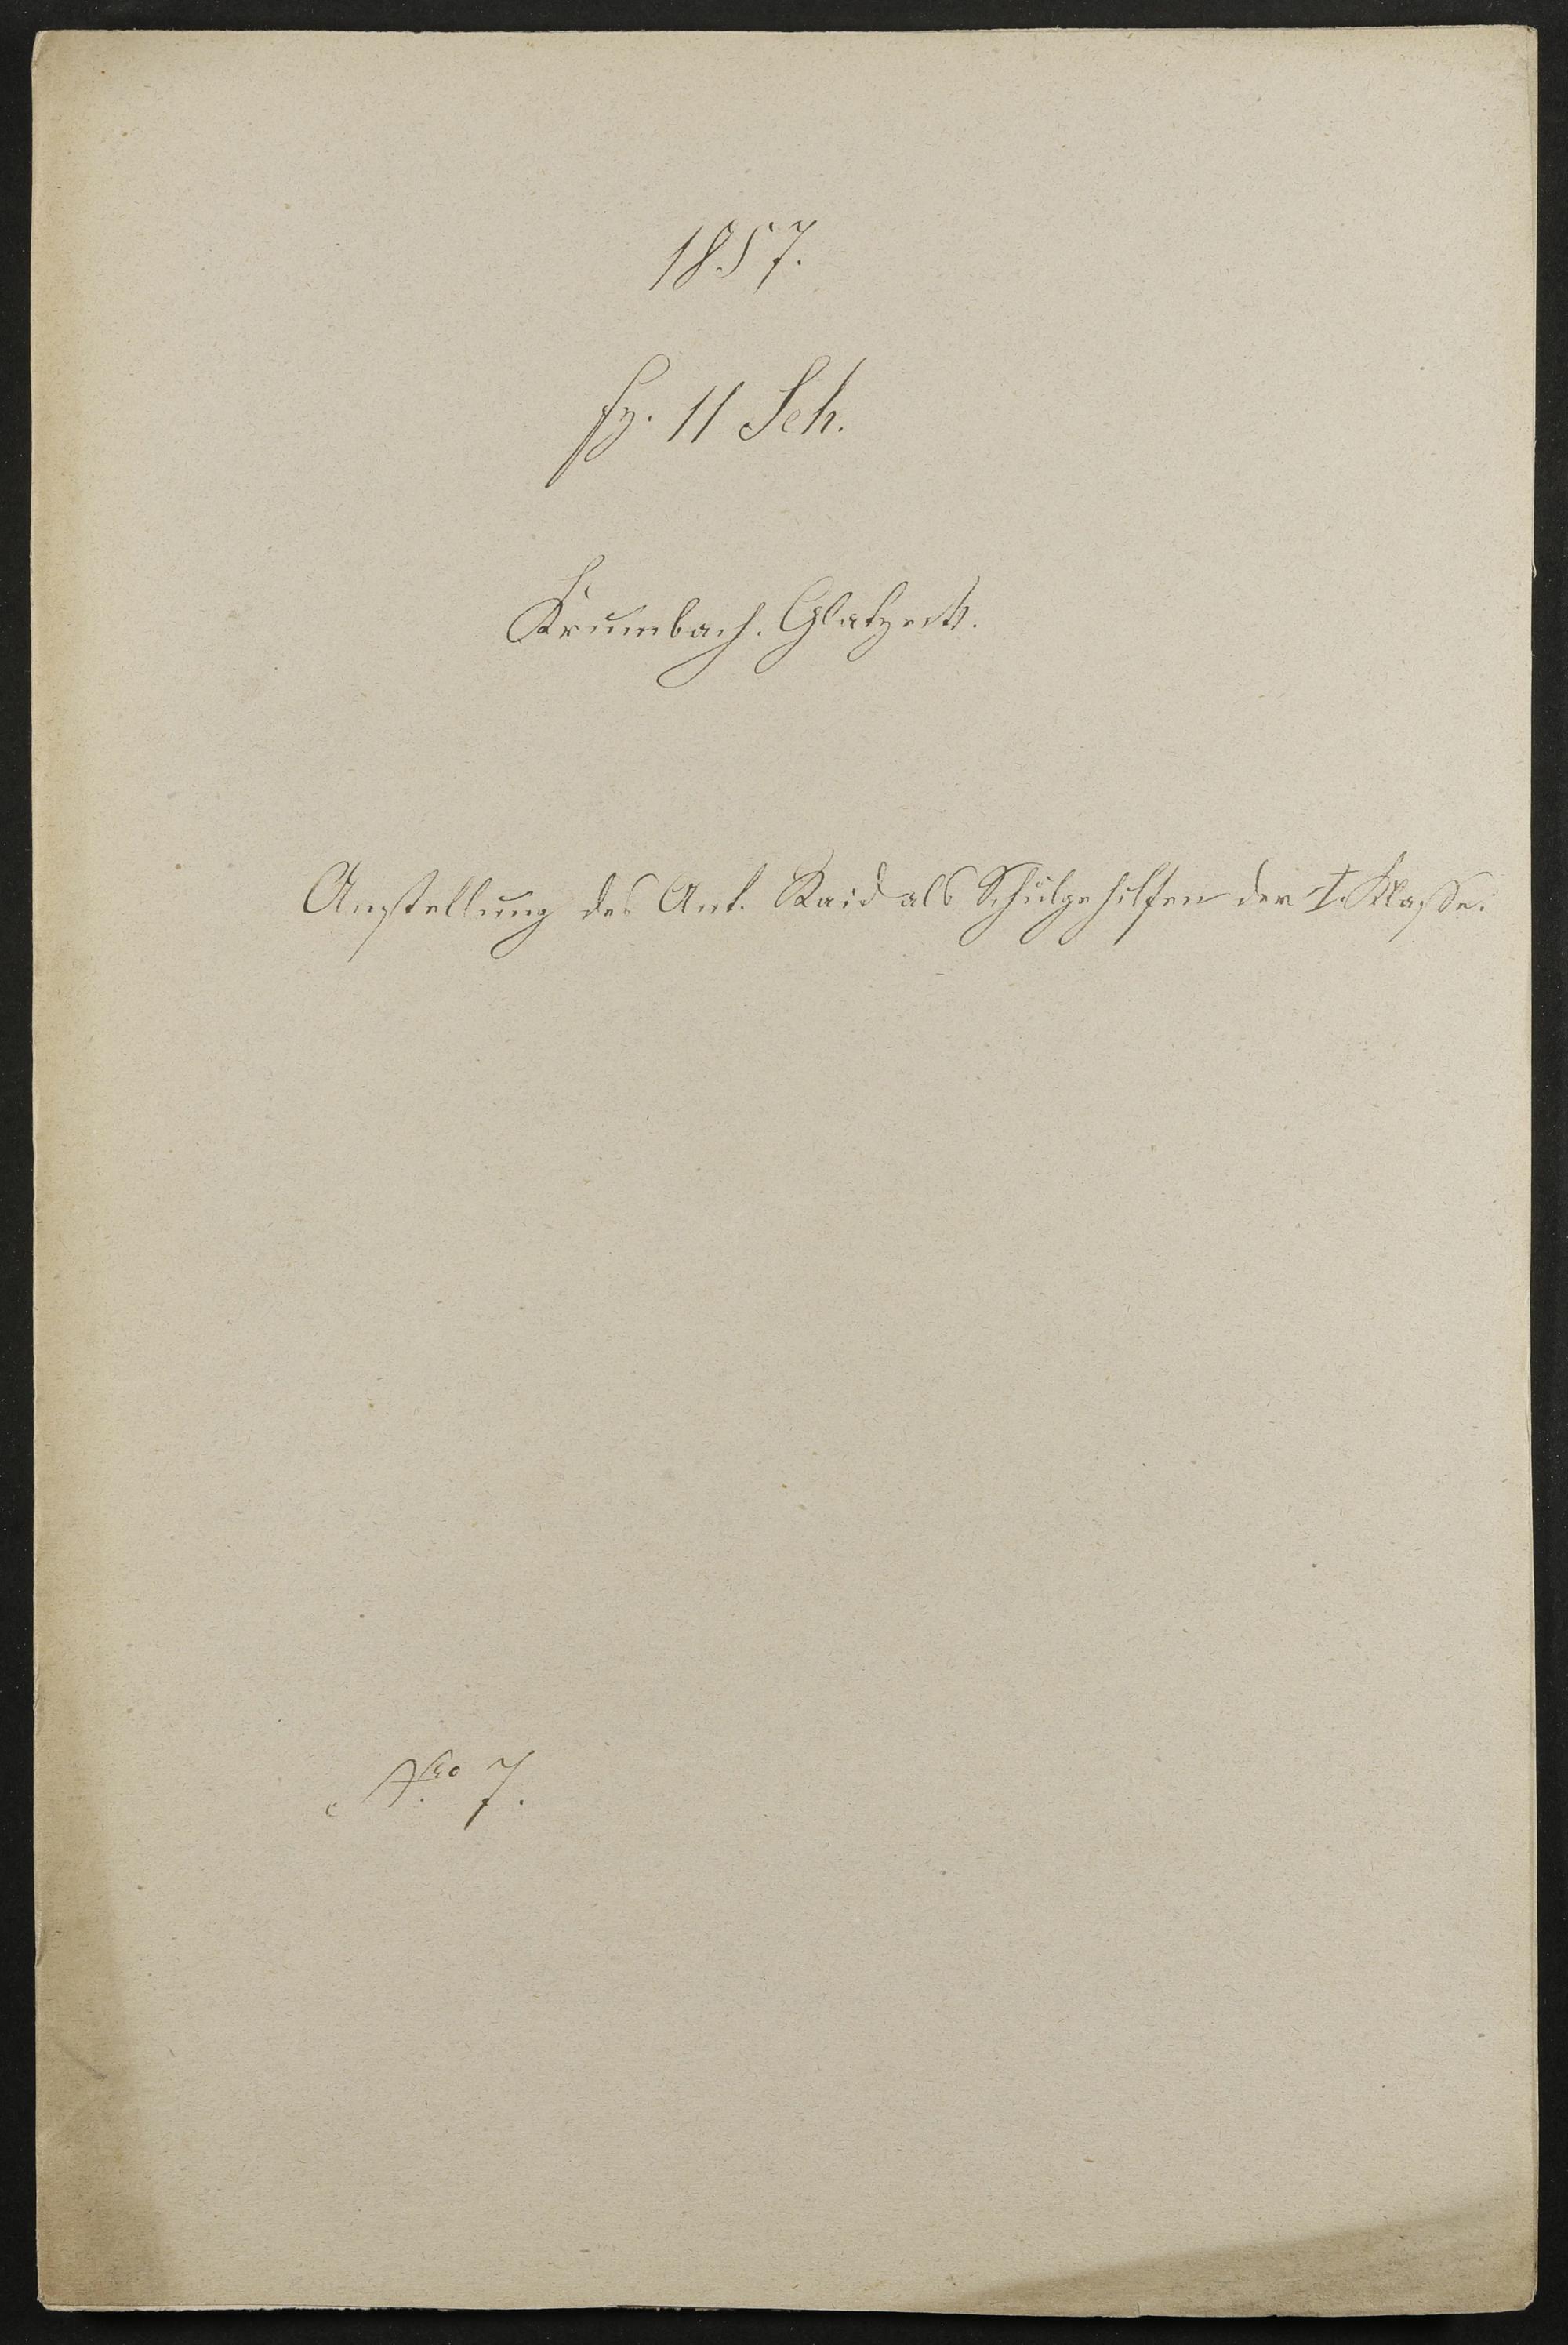 1857.
Fz. 11 Sch.
Krumbach. Glatzeck.
Anstellung des Ant. Raid als Schulgehilfen der I. Klaße.
Nro 7.